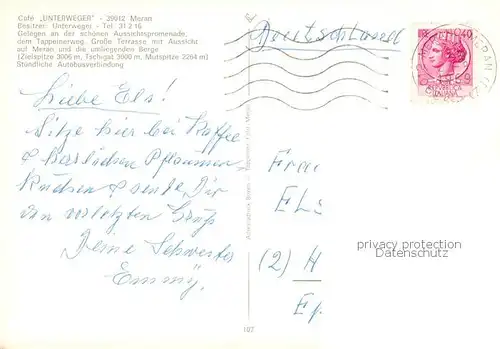 Café „UNTERWEGER" - 39012 Meran
Besitzer: Unterweger - Tel. 31 2 16
Gelegen an der schönen Aussichtspromenade,
dem Tappeinerweg. Große Terrasse mit Aussicht
auf Meran und die umliegenden Berge
(Zielspitze 3006 m, Tschigat 3000 m, Mutspitze 2264 m)
Stündliche Autobusverbindung
Deutschland
Liebe Els!
Sitze hier bei Kaffee
& herrlichen Pflaumen-
kuchen & sende Dir
den vorletzten Gruß
Deine Schwester
Emmy
Frau
ELS
(2) H
privacy protection
Datenschutz
107